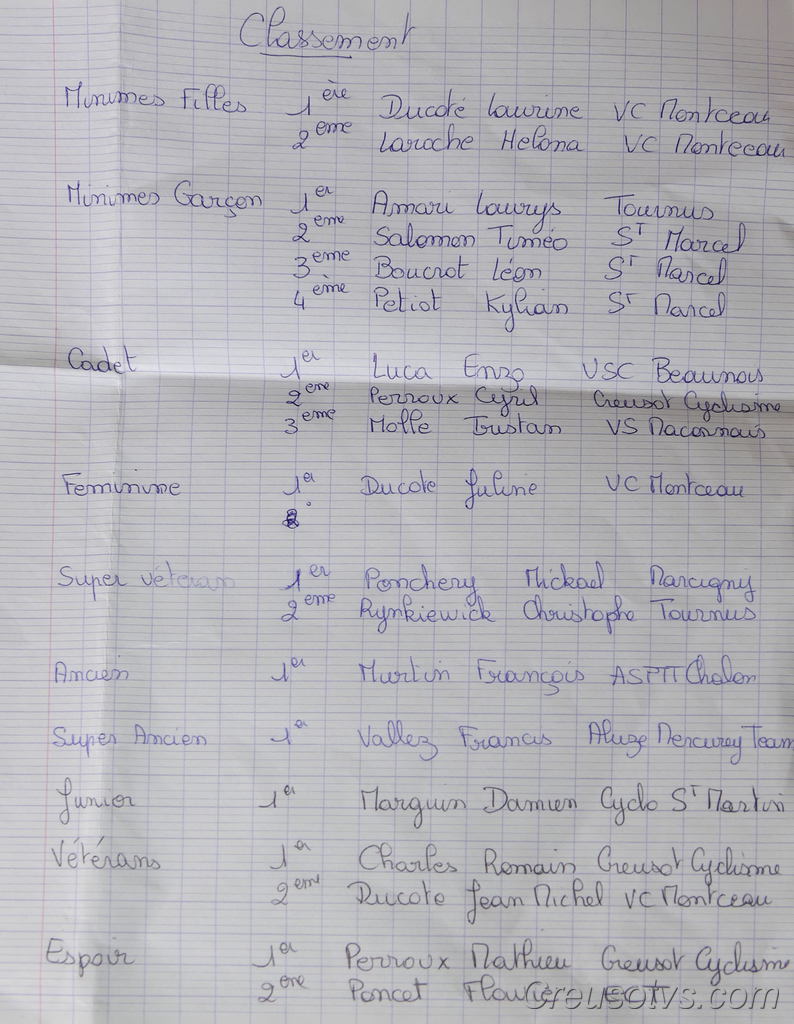 Classement
Minimes Filles 1ère Ducoté Laurine VC Montceau
2eme Laroche Helona VC Montceau
Minimes Garçon 1er Amari Laurys Tournus
2eme Salomon Timéo ST Marcel
3eme Boucrot Léon ST Marcel
4ème Petiot Kylian ST Marcel
Cadet 1er Luca Enzo VSC Beaunois
2eme Perroux Cyril Creusot Cyclisme
3eme Molle Tristan VS Maconnais
Feminine 1er Ducote Juline VC Montceau
Super véteran 1er Ponchery Mickael Marcigny
2eme Rynkiewick Christophe Tournus
Ancien 1er Martin François ASPTT Chalon
Super Ancien 1er Vallez Francis Aluze Mercurey Team
Junior 1er Marguin Damien Cyclo ST Martin
Vétérans 1er Charles Romain Creusot Cyclisme
2eme Ducote Jean Michel VC Montceau
Espoir 1er Perroux Mathieu Creusot Cyclism
2eme Poncet
creusotvs.com